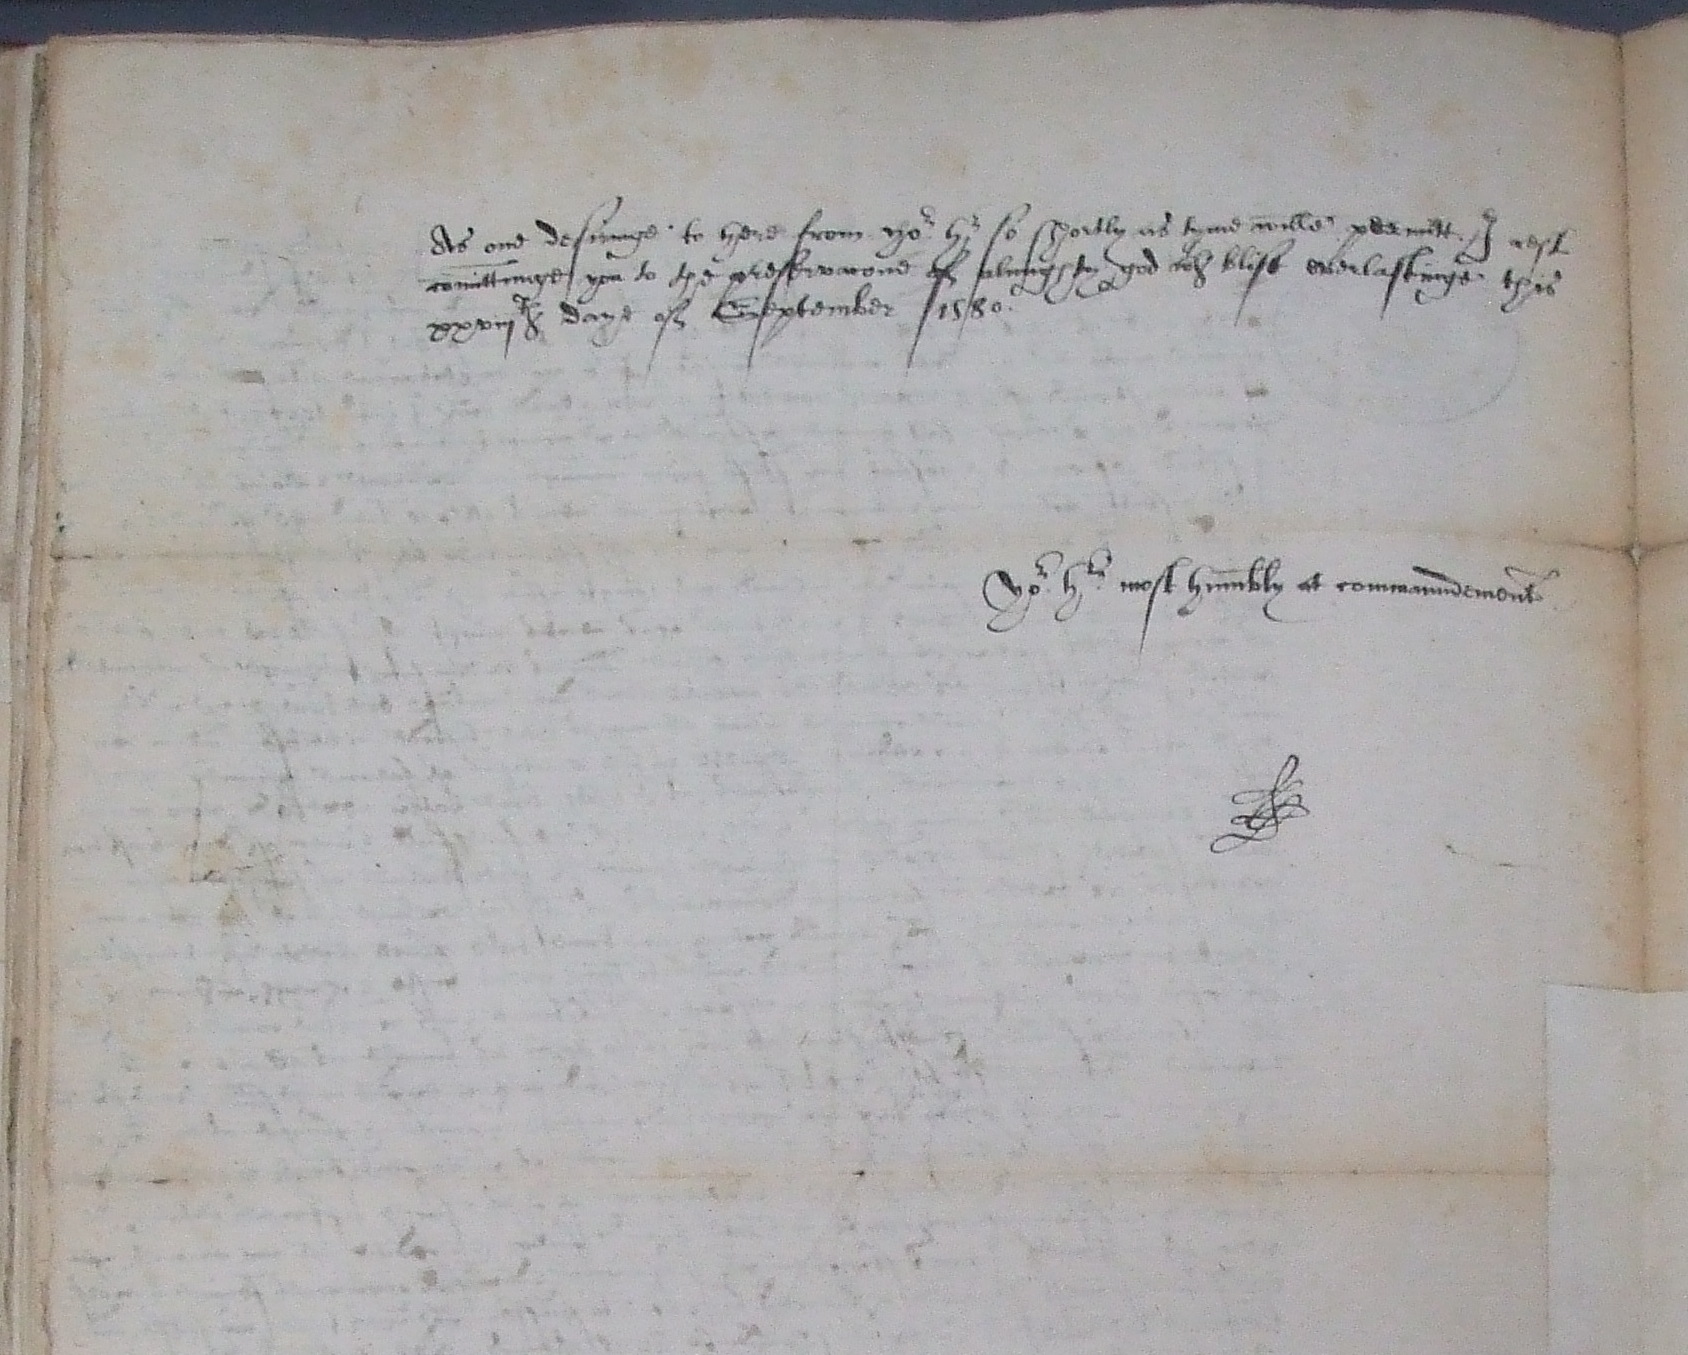 As one desiringe to here from yor hr so shortly as tyme wille permitt. I rest
comittinge you to the preservacone of almighty god wth blisse everlastinge this
xxviijth daye of September 1580.
Yor hrs most humbly at commaundement